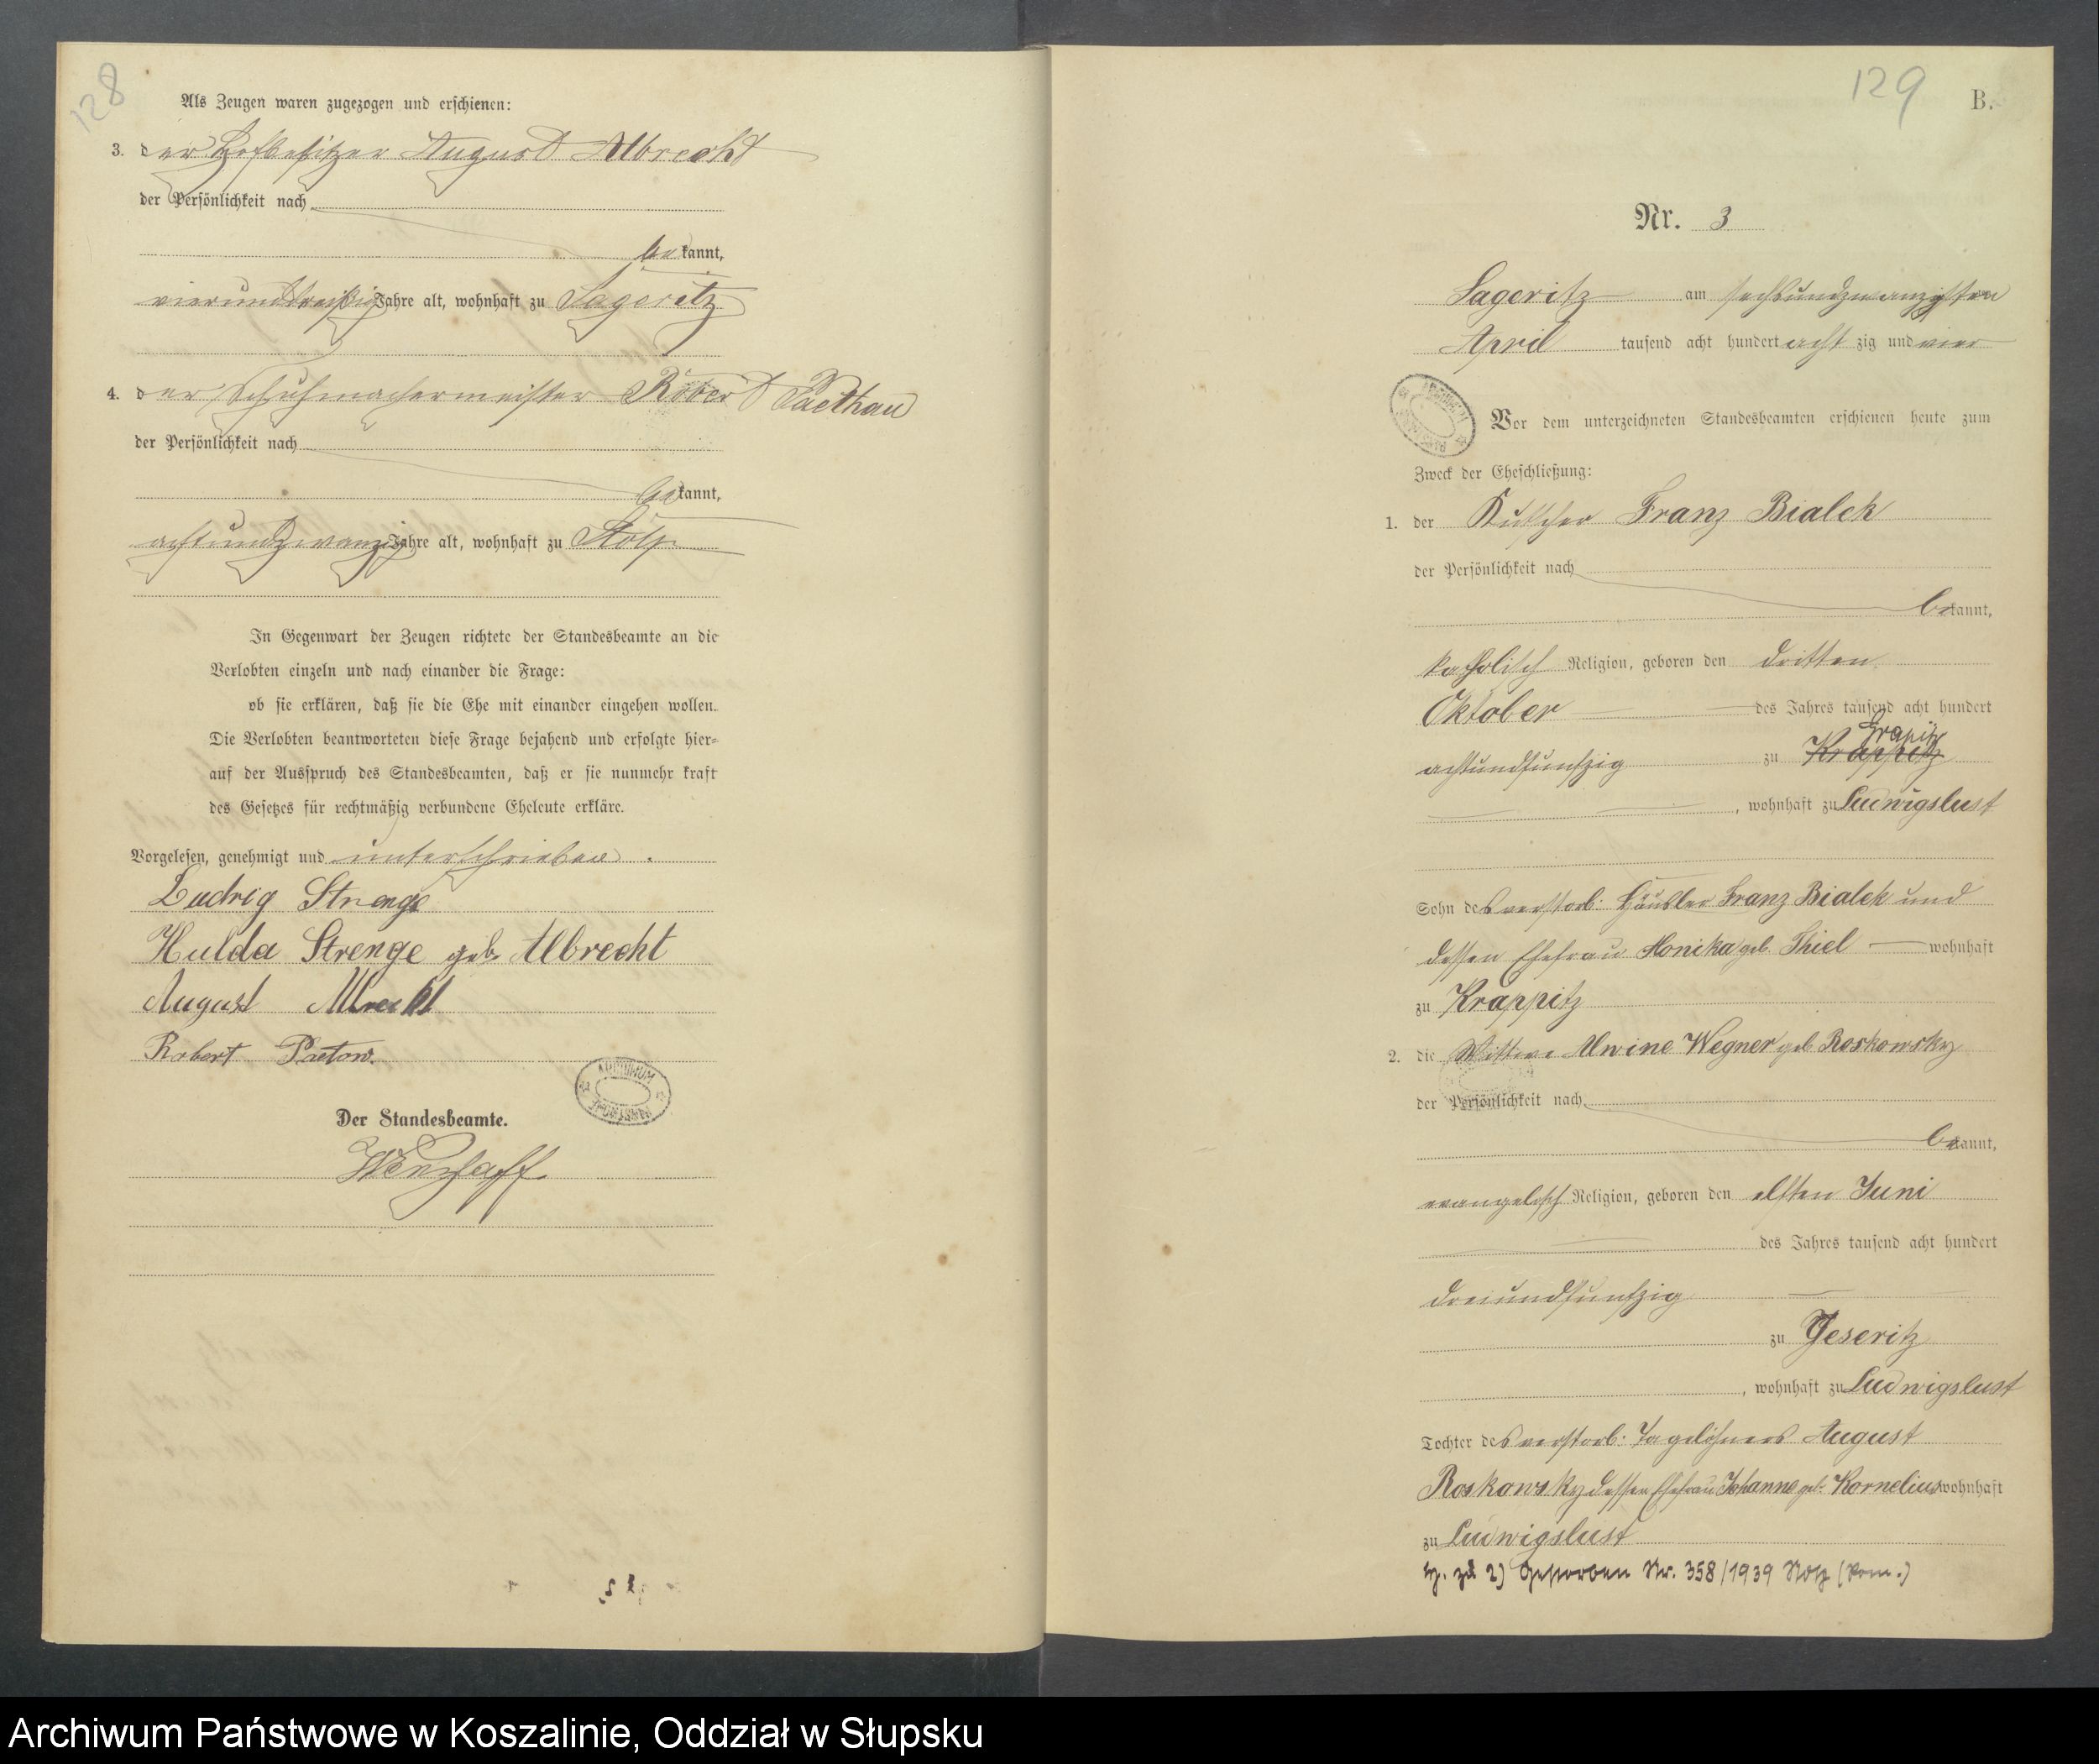 128
Als Zeugen waren zugezogen und erschienen:
3. der Hofbesitzer August Albrecht
der Persönlichkeit nach
bekannt,
vierunddreißig Jahre alt, wohnhaft zu Sageritz
4. der Schuhmachermeister Robert Paethau
der Persönlichkeit nach
bekannt,
achtundzwanzig Jahre alt, wohnhaft zu Stolp
In Gegenwart der Zeugen richtete der Standesbeamte an die
Verlobten einzeln und nach einander die Frage:
ob sie erklären, daß sie die Ehe mit einander eingehen wollen.
Die Verlobten beantworteten diese Frage bejahend und erfolgte hier-
auf der Ausspruch des Standesbeamten, daß er sie nunmehr kraft
des Gesetzes für rechtmäßig verbundene Eheleute erkläre.
Vorgelesen, genehmigt und unterschrieben.
Ludwig Strenge
Hulda Strenge geb. Albrecht
August Albrecht
Robert Paetow.
Der Standesbeamte.
129
B.
Nr. 3
Sageritz am sechsundzwanzigsten
April tausend acht hundert achtzig und vier
Vor dem unterzeichneten Standesbeamten erschienen heute zum
Zweck der Eheschließung:
1. der Kutscher Franz Bialek
der Persönlichkeit nach
bekannt,
katholisch Religion, geboren den dritten
Oktober des Jahres tausend acht hundert
Grapitz
achtundfunfzig zu Krappitz
, wohnhaft zu Ludwigslust
Sohn des verstorb. Häusler Franz Bialek und
dessen Ehefrau Monika geb. Thiel wohnhaft
zu Krappitz
2. die Wittwe Alwine Wegner geb Roskowsky
der Persönlichkeit nach
bekannt,
evangelisch Religion, geboren den elften Juni
des Jahres tausend acht hundert
dreiundfunfzig
zu Jeseritz
, wohnhaft zu Ludwigslust
Tochter des verstorb. Tagelöhners August
Roskowsky dessen Ehefrau Johanne geb. Kornelius wohnhaft
zu Ludwigslust
zu 2) Gestorben Nr. 358/1939 Stolp (Pom.)
Archiwum Państwowe w Koszalinie, Oddział w Słupsku